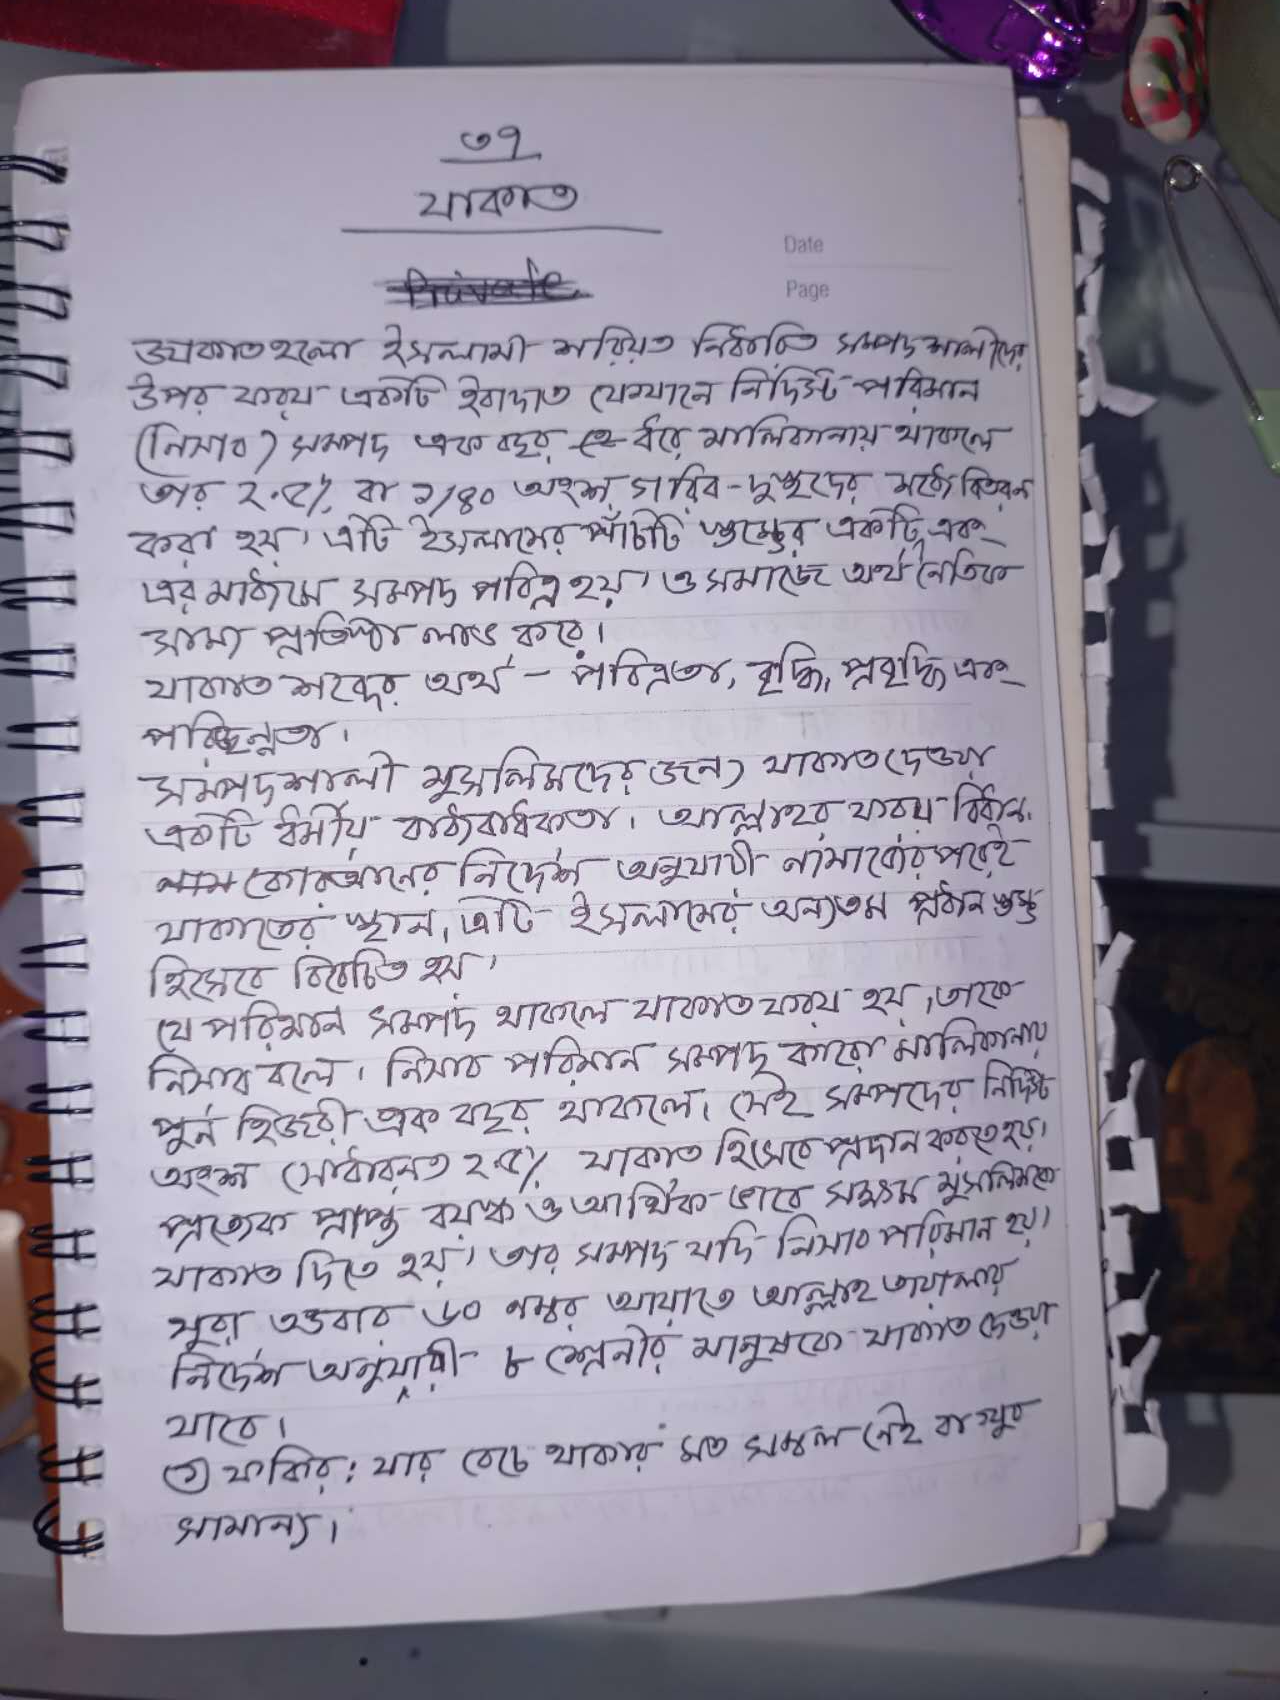 ৩৭
যাকাত
Private
Date
Page
যাকাত হলো ইসলামী শরিয়ত নির্ধারিত সম্পদশালীদের
উপর ফরয একটি ইবাদাত যেখানে নির্দিষ্ট পরিমান
(নিসাব) সম্পদ এক বছর ধরে মালিকানায় থাকলে
তার ২.৫% বা ১/৪০ অংশ গরিব-দুস্থদের মধ্যে বিতরন
করা হয়। এটি ইসলামের পাঁচটি স্তম্ভের একটি, এবং
এর মাধ্যমে সম্পদ পবিত্র হয়। ও সমাজে অর্থনৈতিক
সাম্য প্রতিষ্ঠা লাভ করে।
যাকাত শব্দের অর্থ - পবিত্রতা, বৃদ্ধি, প্রবৃদ্ধি এবং
পরিচ্ছন্নতা।
সম্পদশালী মুসলিমদের জন্য যাকাত দেওয়া
একটি ধর্মীয় বাধ্যবাধকতা। আল্লাহর ফরয বিধান।
কোরআনের নির্দেশ অনুযায়ী নামাযের পরেই
যাকাতের স্থান, এটি ইসলামের অন্যতম প্রধান স্তম্ভ
হিসেবে বিবেচিত হয়।
যে পরিমান সম্পদ থাকলে যাকাত ফরয হয়, তাকে
নিসাব বলে। নিসাব পরিমান সম্পদ কারো মালিকানায়
পুর্ন হিজরী এক বছর থাকলে, সেই সম্পদের নির্দিষ্ট
অংশ (সাধারনত ২.৫% যাকাত হিসেবে প্রদান করতে হয়।
প্রত্যেক প্রাপ্ত বয়স্ক ও আর্থিক ভাবে সক্ষম মুসলিমকে
যাকাত দিতে হয়। তার সম্পদ যদি নিসাব পরিমান হয়।
সুরা তওবার ৬০ নম্বর আয়াতে আল্লাহ তায়ালার
নির্দেশ অনুযায়ী ৮ শ্রেনীর মানুষকে যাকাত দেওয়া
যাবে।
১) ফকির: যার বেচে থাকার মত সম্বল নেই বা খুব
সামান্য।